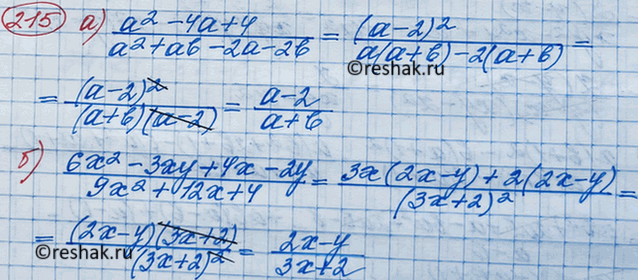 215 а) (a² - 4a + 4)/(a² + ab - 2a - 2b) = (a-2)²/(a(a+b) - 2(a+b)) =
©reshak.ru
= (a-2)²/((a+b)(a-2)) = (a-2)/(a+b)
б) (6x² - 3xy + 4x - 2y)/(9x² + 12x + 4) = (3x(2x-y) + 2(2x-y))/(3x+2)² =
= (2x-y)(3x+2)/(3x+2)² = (2x-y)/(3x+2)
©reshak.ru